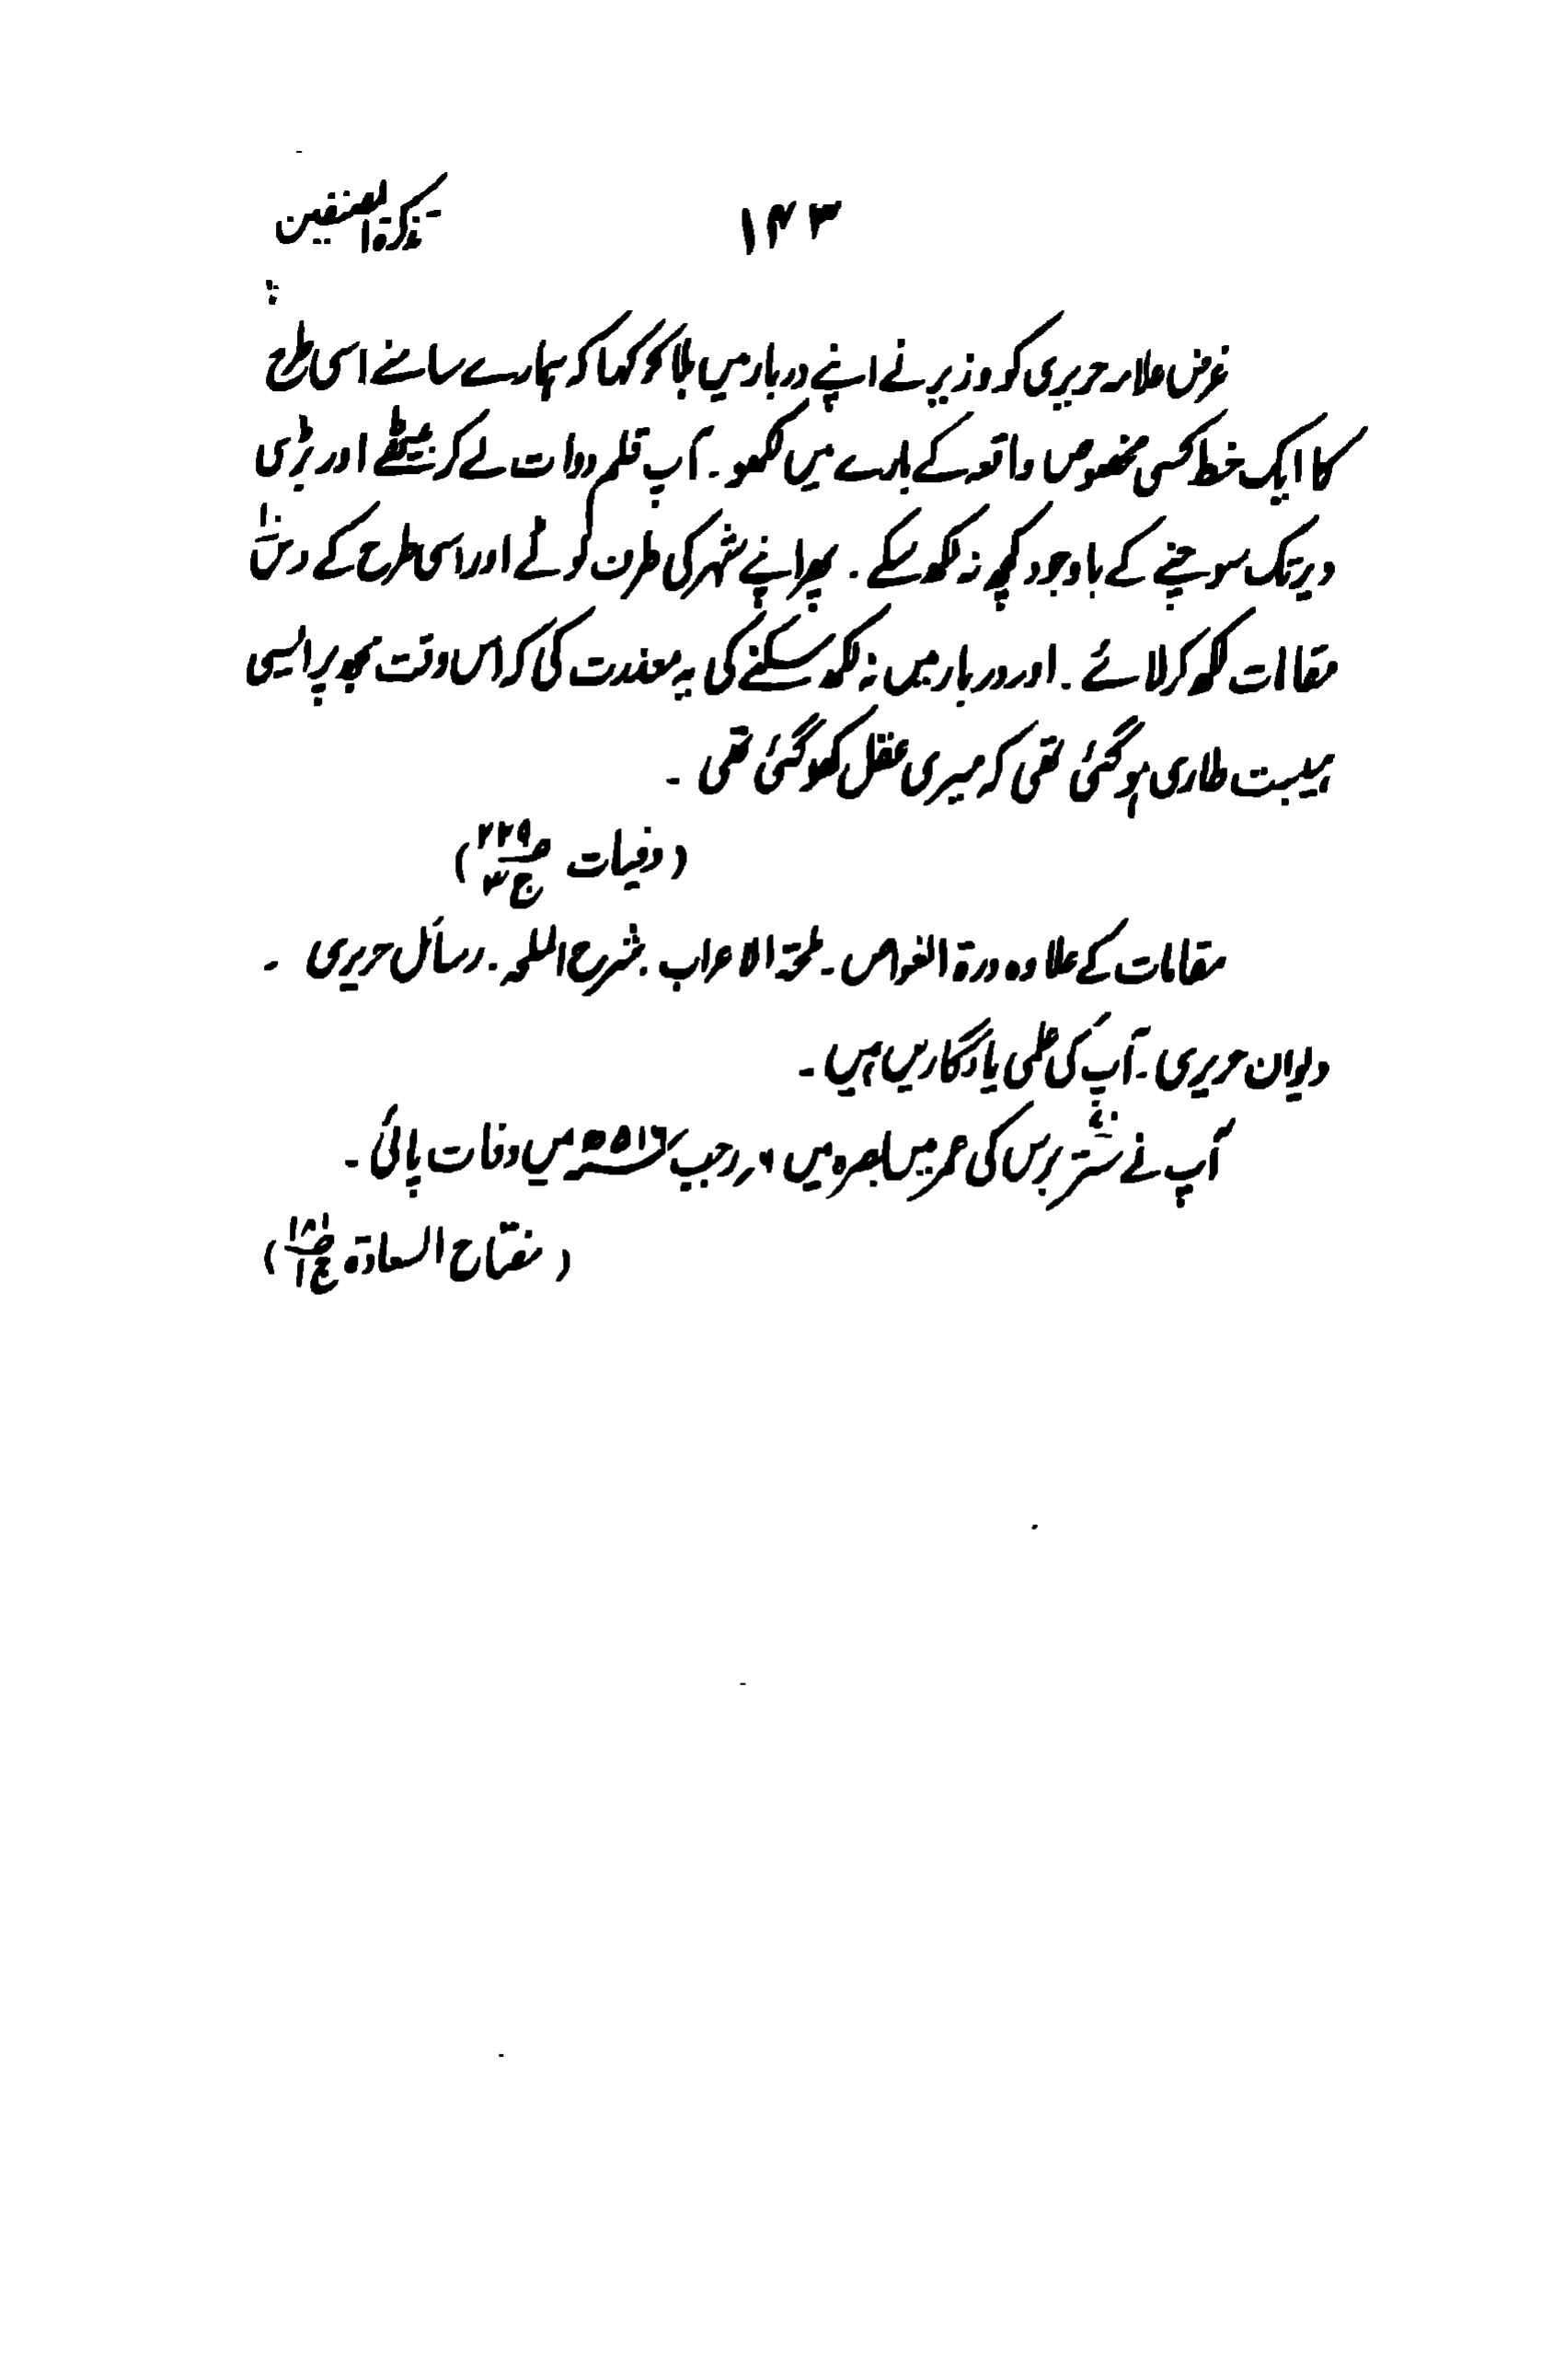 تذکرۃ المصنفین
۱۴۳
غرض علامہ حریری کو وزیر نے اپنے دربار میں بلا کر کہا کہ ہمارے سامنے اسی طرح
کا ایک خط کسی مخصوص واقعہ کے بارے میں لکھو ۔ آپ قلم دوات لے کر بیٹھے اور بڑی
دیر تک سوچنے کے باوجود کچھ نہ لکھ سکے ۔ پھر اپنے شہر کی طرف لوٹے اور اسی طرح کے دس
مقامات لکھ کر لائے ۔ اور دربار میں نہ لکھ سکنے کی یہ معذرت کی کہ اس وقت مجھ پر ایسی
ہیبت طاری ہو گئی تھی کہ میری عقل کھو گئی تھی ۔
( وفیات ص۲۲۹ ج۳ )
مقامات کے علاوہ درۃ الغواص ۔ ملحۃ الاعراب ۔ شرح الملحہ ۔ رسائل حریری ۔
دیوان حریری ۔ آپ کی علمی یادگاریں ہیں ۔
آپ نے ستر برس کی عمر میں بصرہ میں ۶ ر رجب ۵۱۶ھ میں وفات پائی ۔
( مفتاح السعادۃ ص۱۸۱ ج۱ )